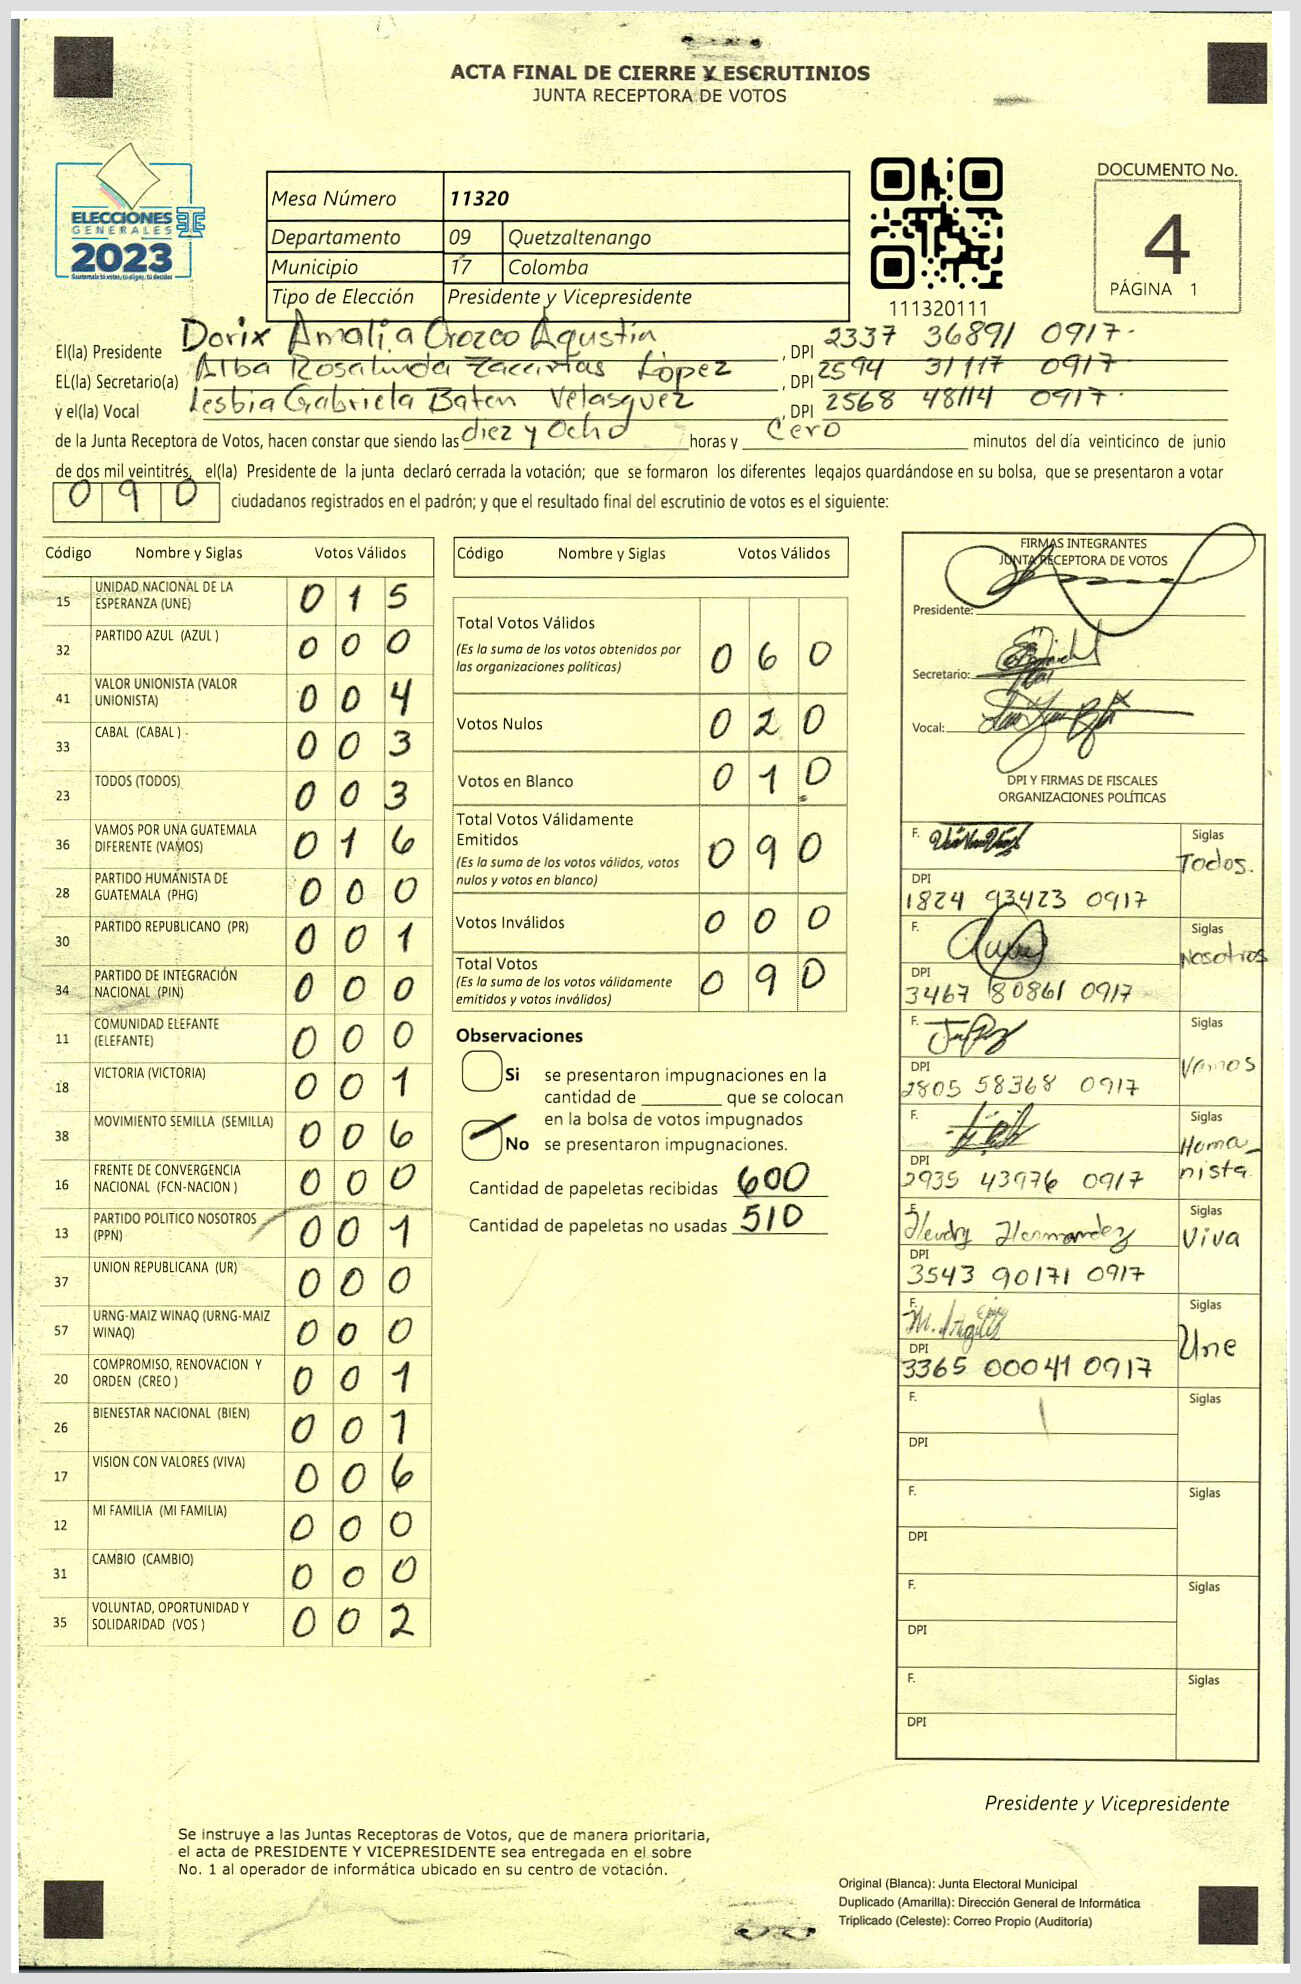 ACTA FINAL DE CIERRE Y ESCRUTINIOS
JUNTA RECEPTORA DE VOTOS
ELECCIONES
GENERALES
2023
Guatemala tú votas, tú eliges, tú decides
Mesa Número 11320
Departamento 09 Quetzaltenango
Municipio 17 Colomba
Tipo de Elección Presidente y Vicepresidente
111320111
DOCUMENTO No.
4
PÁGINA 1
El(la) Presidente Dorix Amalia Orozco Agustin, DPI 2337 36891 0917.
EL(la) Secretario(a) Alba Rosalinda Zacarias López, DPI 2594 31117 0917
y el(la) Vocal Lesbia Gabriela Baten Velasquez, DPI 2568 48114 0917.
de la Junta Receptora de Votos, hacen constar que siendo las diez y ocho horas y cero minutos del día veinticinco de junio
de dos mil veintitrés, el(la) Presidente de la junta declaró cerrada la votación; que se formaron los diferentes legajos guardándose en su bolsa, que se presentaron a votar
0 9 0 ciudadanos registrados en el padrón; y que el resultado final del escrutinio de votos es el siguiente:
Código Nombre y Siglas Votos Válidos
15 UNIDAD NACIONAL DE LA ESPERANZA (UNE) 0 1 5
32 PARTIDO AZUL (AZUL ) 0 0 0
41 VALOR UNIONISTA (VALOR UNIONISTA) 0 0 4
33 CABAL (CABAL ) 0 0 3
23 TODOS (TODOS) 0 0 3
36 VAMOS POR UNA GUATEMALA DIFERENTE (VAMOS) 0 1 6
28 PARTIDO HUMANISTA DE GUATEMALA (PHG) 0 0 0
30 PARTIDO REPUBLICANO (PR) 0 0 1
34 PARTIDO DE INTEGRACIÓN NACIONAL (PIN) 0 0 0
11 COMUNIDAD ELEFANTE (ELEFANTE) 0 0 0
18 VICTORIA (VICTORIA) 0 0 1
38 MOVIMIENTO SEMILLA (SEMILLA) 0 0 6
16 FRENTE DE CONVERGENCIA NACIONAL (FCN-NACION ) 0 0 0
13 PARTIDO POLITICO NOSOTROS (PPN) 0 0 1
37 UNION REPUBLICANA (UR) 0 0 0
57 URNG-MAIZ WINAQ (URNG-MAIZ WINAQ) 0 0 0
20 COMPROMISO, RENOVACION Y ORDEN (CREO ) 0 0 1
26 BIENESTAR NACIONAL (BIEN) 0 0 1
17 VISION CON VALORES (VIVA) 0 0 6
12 MI FAMILIA (MI FAMILIA) 0 0 0
31 CAMBIO (CAMBIO) 0 0 0
35 VOLUNTAD, OPORTUNIDAD Y SOLIDARIDAD (VOS ) 0 0 2
Código Nombre y Siglas Votos Válidos
Total Votos Válidos
(Es la suma de los votos obtenidos por
las organizaciones políticas) 0 6 0
Votos Nulos 0 2 0
Votos en Blanco 0 1 0
Total Votos Válidamente
Emitidos
(Es la suma de los votos válidos, votos
nulos y votos en blanco) 0 9 0
Votos Inválidos 0 0 0
Total Votos
(Es la suma de los votos válidamente
emitidos y votos inválidos) 0 9 0
Observaciones
Si se presentaron impugnaciones en la
cantidad de ________ que se colocan
en la bolsa de votos impugnados
No se presentaron impugnaciones.
Cantidad de papeletas recibidas 600
Cantidad de papeletas no usadas 510
FIRMAS INTEGRANTES
JUNTA RECEPTORA DE VOTOS
Presidente:
Secretario:
Vocal:
DPI Y FIRMAS DE FISCALES
ORGANIZACIONES POLÍTICAS
F. Siglas
Todos.
DPI
1824 93423 0917
F. Siglas
Nosotros
DPI
3467 80861 0917
F. Siglas
Vamos
DPI
2805 58368 0917
F. Siglas
Homa-
nista
DPI
2935 43976 0917
F. Siglas
Hendry Hernandez Viva
DPI
3543 90171 0917
F. Siglas
Une
DPI
3365 00041 0917
F. Siglas
DPI
F. Siglas
DPI
F. Siglas
DPI
F. Siglas
DPI
Presidente y Vicepresidente
Se instruye a las Juntas Receptoras de Votos, que de manera prioritaria,
el acta de PRESIDENTE Y VICEPRESIDENTE sea entregada en el sobre
No. 1 al operador de informática ubicado en su centro de votación.
Original (Blanca): Junta Electoral Municipal
Duplicado (Amarilla): Dirección General de Informática
Triplicado (Celeste): Correo Propio (Auditoría)